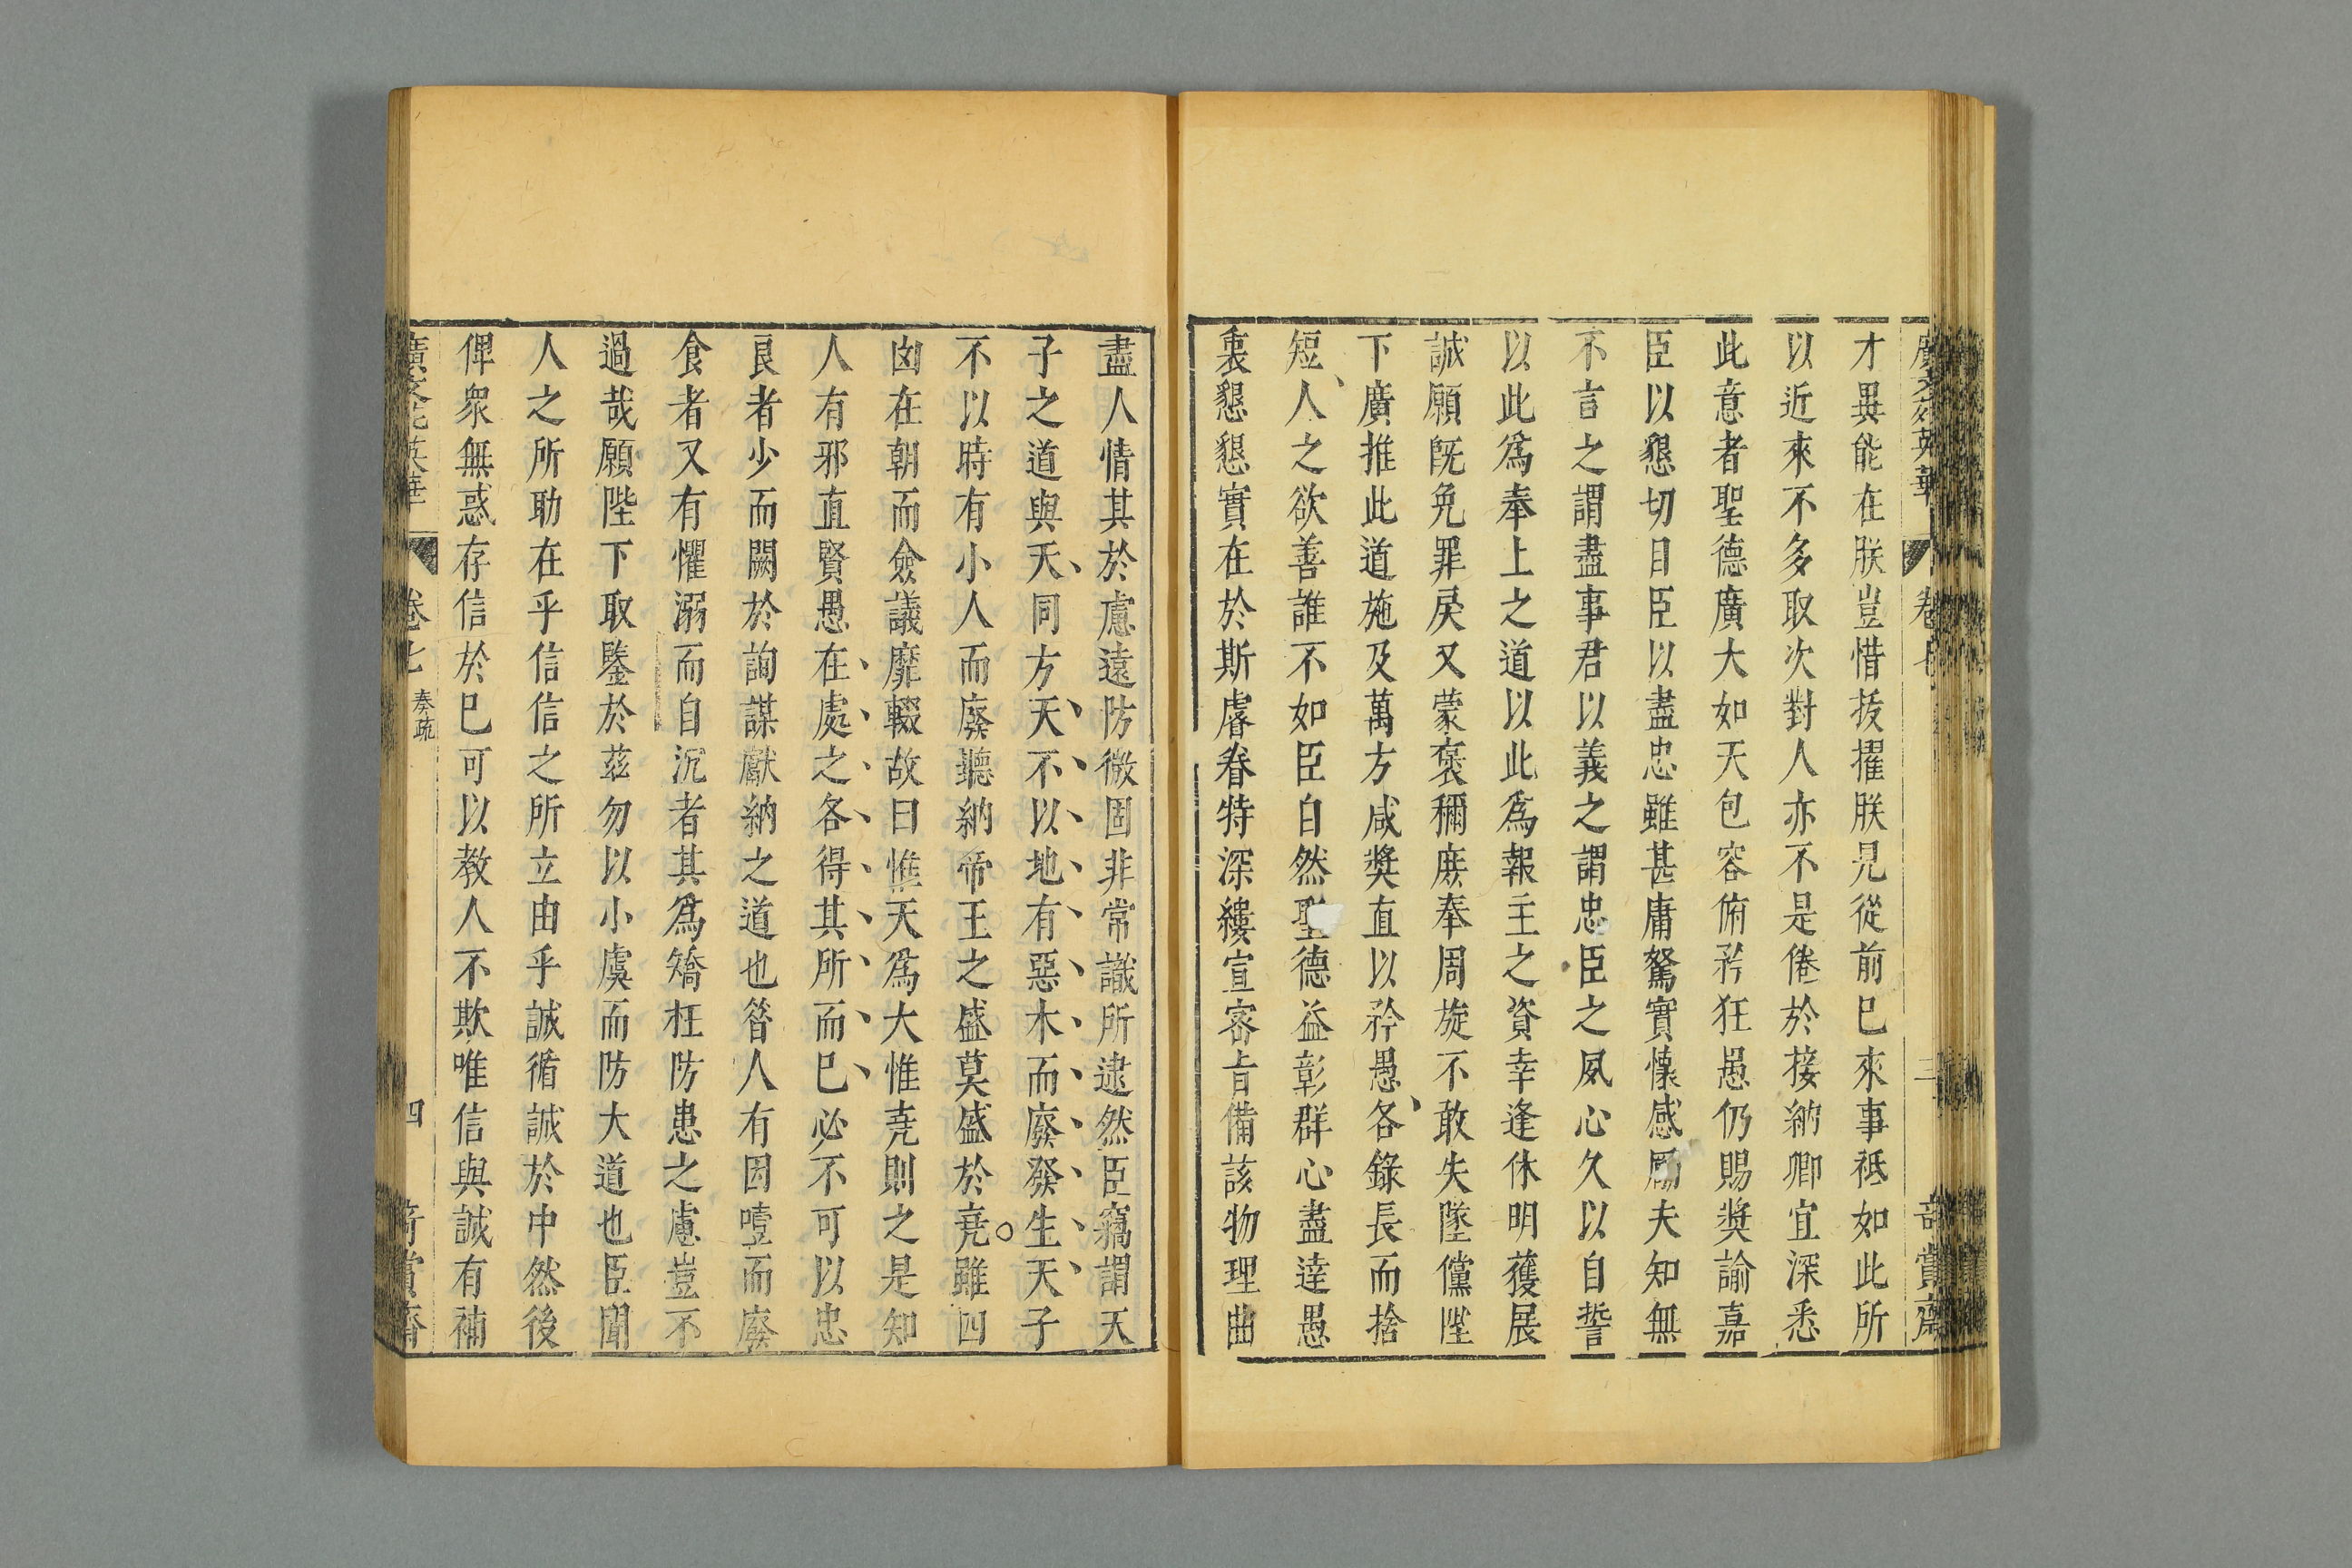 廣文苑英華 卷七 三 奇賞齋
才異能在朕豈惜拔擢朕見從前已來事祗如此所
以近來不多取次對人亦不是倦於接納卿宜深悉
此意者聖德廣大如天包容俯矜狂愚仍賜獎諭嘉
臣以懇切目臣以盡忠雖甚庸駑實懷感勵夫知無
不言之謂盡事君以義之謂忠臣之夙心久以自誓
以此爲奉上之道以此爲報主之資幸逢休明獲展
誠願旣免罪戾又蒙褒稱庶奉周旋不敢失墜儻陛
下廣推此道施及萬方咸獎直以矜愚各錄長而捨
短人之欲善誰不如臣自然聖德益彰群心盡達愚
衷懇懇實在於斯睿眷特深縷宣密旨備該物理曲
盡人情其於慮遠防微固非常識所逮然臣竊謂天
子之道與天同方天不以地有惡木而廢發生天子
不以時有小人而廢聽納帝王之盛莫盛於堯雖四
凶在朝而僉議靡輟故曰惟天爲大惟堯則之是知
人有邪直賢愚在處之各得其所而已必不可以忠
良者少而闕於詢謀獻納之道也昝人有因噎而廢
食者又有懼溺而自沉者其爲矯枉防患之慮豈不
過哉願陛下取鑒於茲勿以小虞而防大道也臣聞
人之所助在乎信信之所立由乎誠循誠於中然後
俾衆無惑存信於巳可以教人不欺唯信與誠有補
廣文苑英華 卷七 奏疏 四 奇賞齋